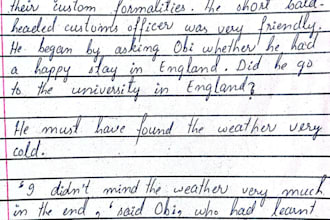 their custom formalities. The short bald-
headed customs officer was very friendly.
He began by asking Obi whether he had
a happy stay in England. Did he go
to the university in England?
He must have found the weather very
cold.
"I didn't mind the weather very much
in the end," said Obi, who had learnt